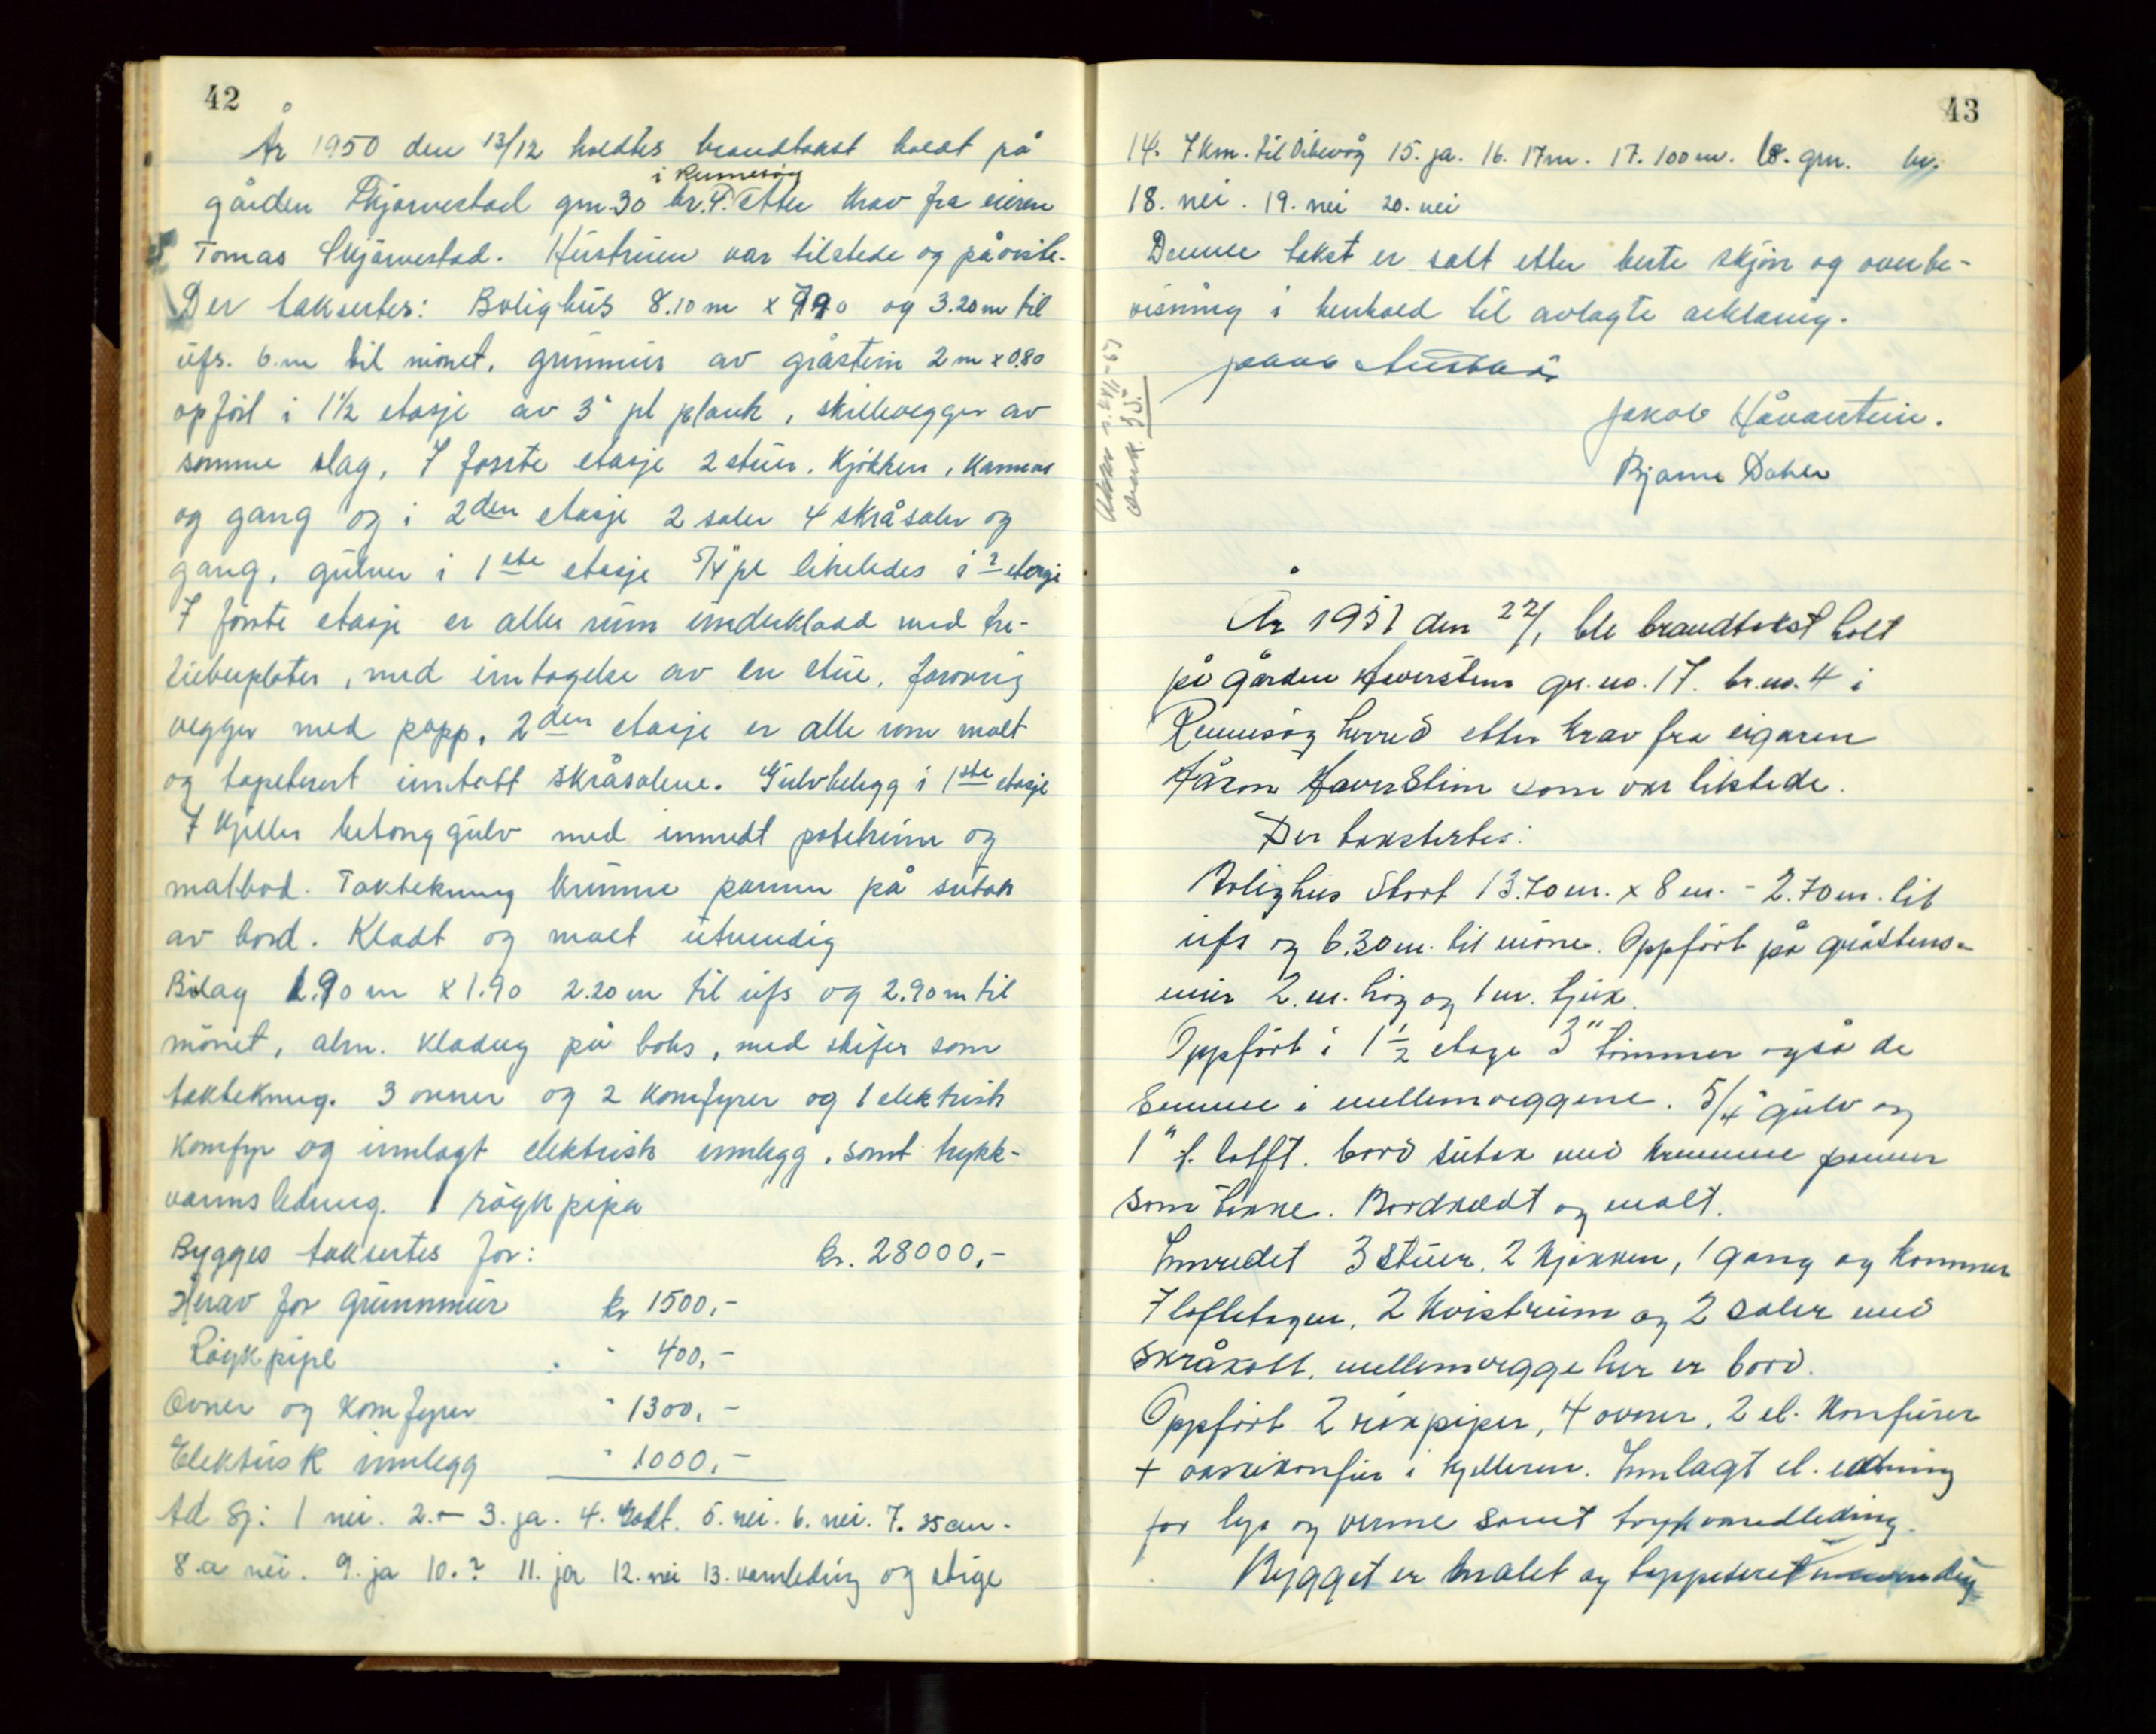 42
År 1950 den 13/12 holdtes brandtakst holdt på
i Rennesøy
gården Skjørvestad grn. 30 br. 4. Etter krav fra eieren
Tomas Skjørvestad. Hustruen var tilstede og påviste.
Der taksertes: Bolighus 8.10 m x 7.90 og 3.20 m til
ufs. 6. m til mønet. grunmur av gråstein 2 m x 0.80
opfört i 1½ etasje av 3" pl plank, skillevegger av
samme slag. I forste etasje 2 stuer, kjökken, kammer
og gang og i 2den etasje 2 saler 4 skråsaler og
gang, gulver i 1ste etasje 5/4" pl likeledes i 2 etasje
I förste etasje er aller rum underkladd med tre-
fiberplater, med inntagelse av en stue. forövrig
vegger med papp. 2den etasje er alle rom malt
og tapetsert inntatt skråsalene. Gulvbelegg i 1ste etasje
I kjeller betonggulv med innredt potetrum og
matbod. Taktekning krumme panner på sutak
av bord. Kledt og malt utvendig
Bislag 1.90 m x 1.90 2.20 m til ufs og 2.90 m til
mönet, alm. kledng på boks, med skifer som
taktekning. 3 ovner og 2 komfyrer og 1 elektrisk
komfyr og innlagt elektrisk innlegg, samt trykk-
vannsledning. 1 röykpipa
Bygges taksertes for: kr. 28000,-
Herav for grunnmur kr 1500,-
Röykpipe " 400,-
Ovner og komfyrer " 1300,-
Elektrisk innlegg " 1000,-
Ad Sj: 1 nei. 2. - 3. ja. 4. Godt. 5. nei. 6. nei. 7. 35 cm.
8.a nei. 9. ja 10. ? 11. ja 12. nei 13. vannleding og stige
43
14. 7 km. til Vikevåg 15. ja. 16. 17 m. 17. 100 m. 18. grn. br.
18. nei. 19. nei 20. nei
Denne takst er satt etter beste skjön og overbe-
visning i henhold til avlagte erklæring.
Jakob Håvarstein.
Bjarne Dahle
År 1951 den 22/1 ble brandtakst holt
på gården Haverstein gr. no. 17. br. no. 4 i
Rennesøy herred etter krav fra eigaren
Håkon Haverstein som var tilstede.
Der takstertes:
Bolighus Stort 13.70 m. x 8 m. - 2.70 m. til
ufs og 6.30 m. til möne. Oppfört på gråstens-
mur 2. m. hög og 1 m. tjuk.
Oppfört i 1½ etage 3" timmer også de
Samme i mellemveggene. 5/4" gulv og
1" t. lofft. bord sutak med krumme panner
som tekke. Bordkledt og malt.
Innredet 3 stuer, 2 kjøkken, 1 gang og kammer
I loftetagen, 2 kvistrum og 2 saler med
skråkott. mellemvegge her er bord.
Oppfört 2 rökpiper, 4 ovner, 2 el. Komfürer
+ komfür i kjelleren. Innlagt el. ledning
for lys og verme samt trykvandledning.
Bygget er malet og tappetseret innvendig